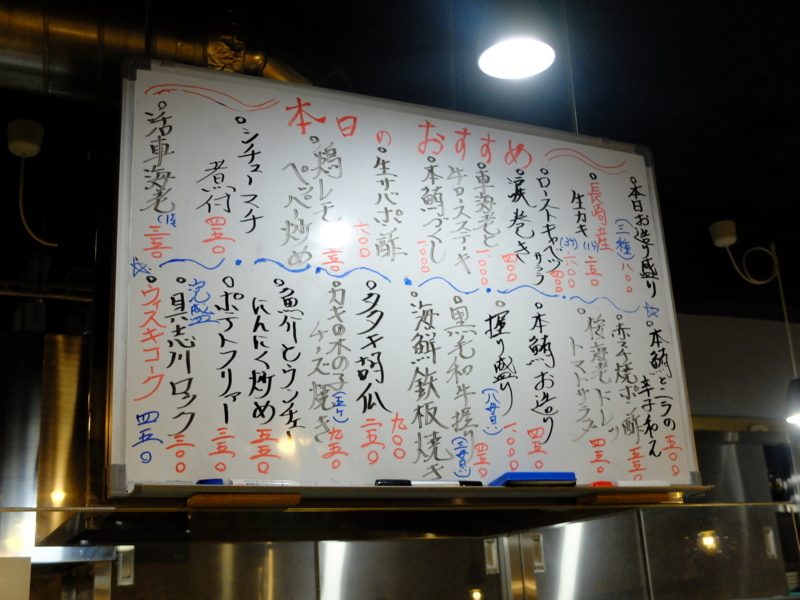 本日のおすすめ
本日お造り盛り
(三種) 八〇〇
長崎産
生カキ
(1ケ) 二五〇
(3ケ) 六〇〇
ローストキャベツ
サラダ 四〇〇
涙巻き 四〇〇
車海老と
牛ロースステーキ 一、〇〇〇
本鮪づくし 一〇〇〇
生サバポン酢 六〇〇
鶏レモン
ペペペー炒め
シチューマチ
煮付 四五〇
活車海老 (1ケ) 三五〇
本鮪とニラの
辛子和え 五〇〇
赤エチ焼ポン酢 五五〇
桜海老ドレッ
トマトサラダ 四五〇
本鮪お造り 四五〇
握り盛り (八貫) 一〇〇〇
黒毛和牛握り (二貫) 四五〇
海鮮鉄板焼き 九〇〇
タタキ胡瓜 二五〇
チーズ焼き 九五〇
にんにく炒め 五五〇
ポテトフリァー 三五〇
完盛
具志川ロック 三〇〇
ウィスキコーク 四五〇